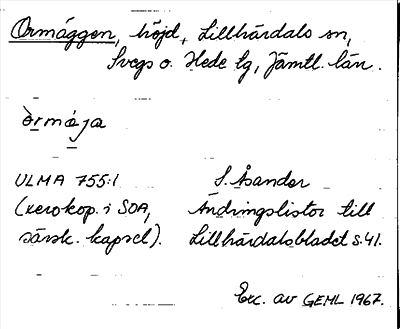 Ormäggen, höjd, Lillhärdals sn,
Svegs o. Hede tg, Jämtl. län.
òrmája
ULMA 755:1
(xerokop. i SOA,
särsk. kapsel).
S. Åsander
Ändringslistor till
Lillhärdalsbladet s. 41.
Exc. av GEHL 1967.